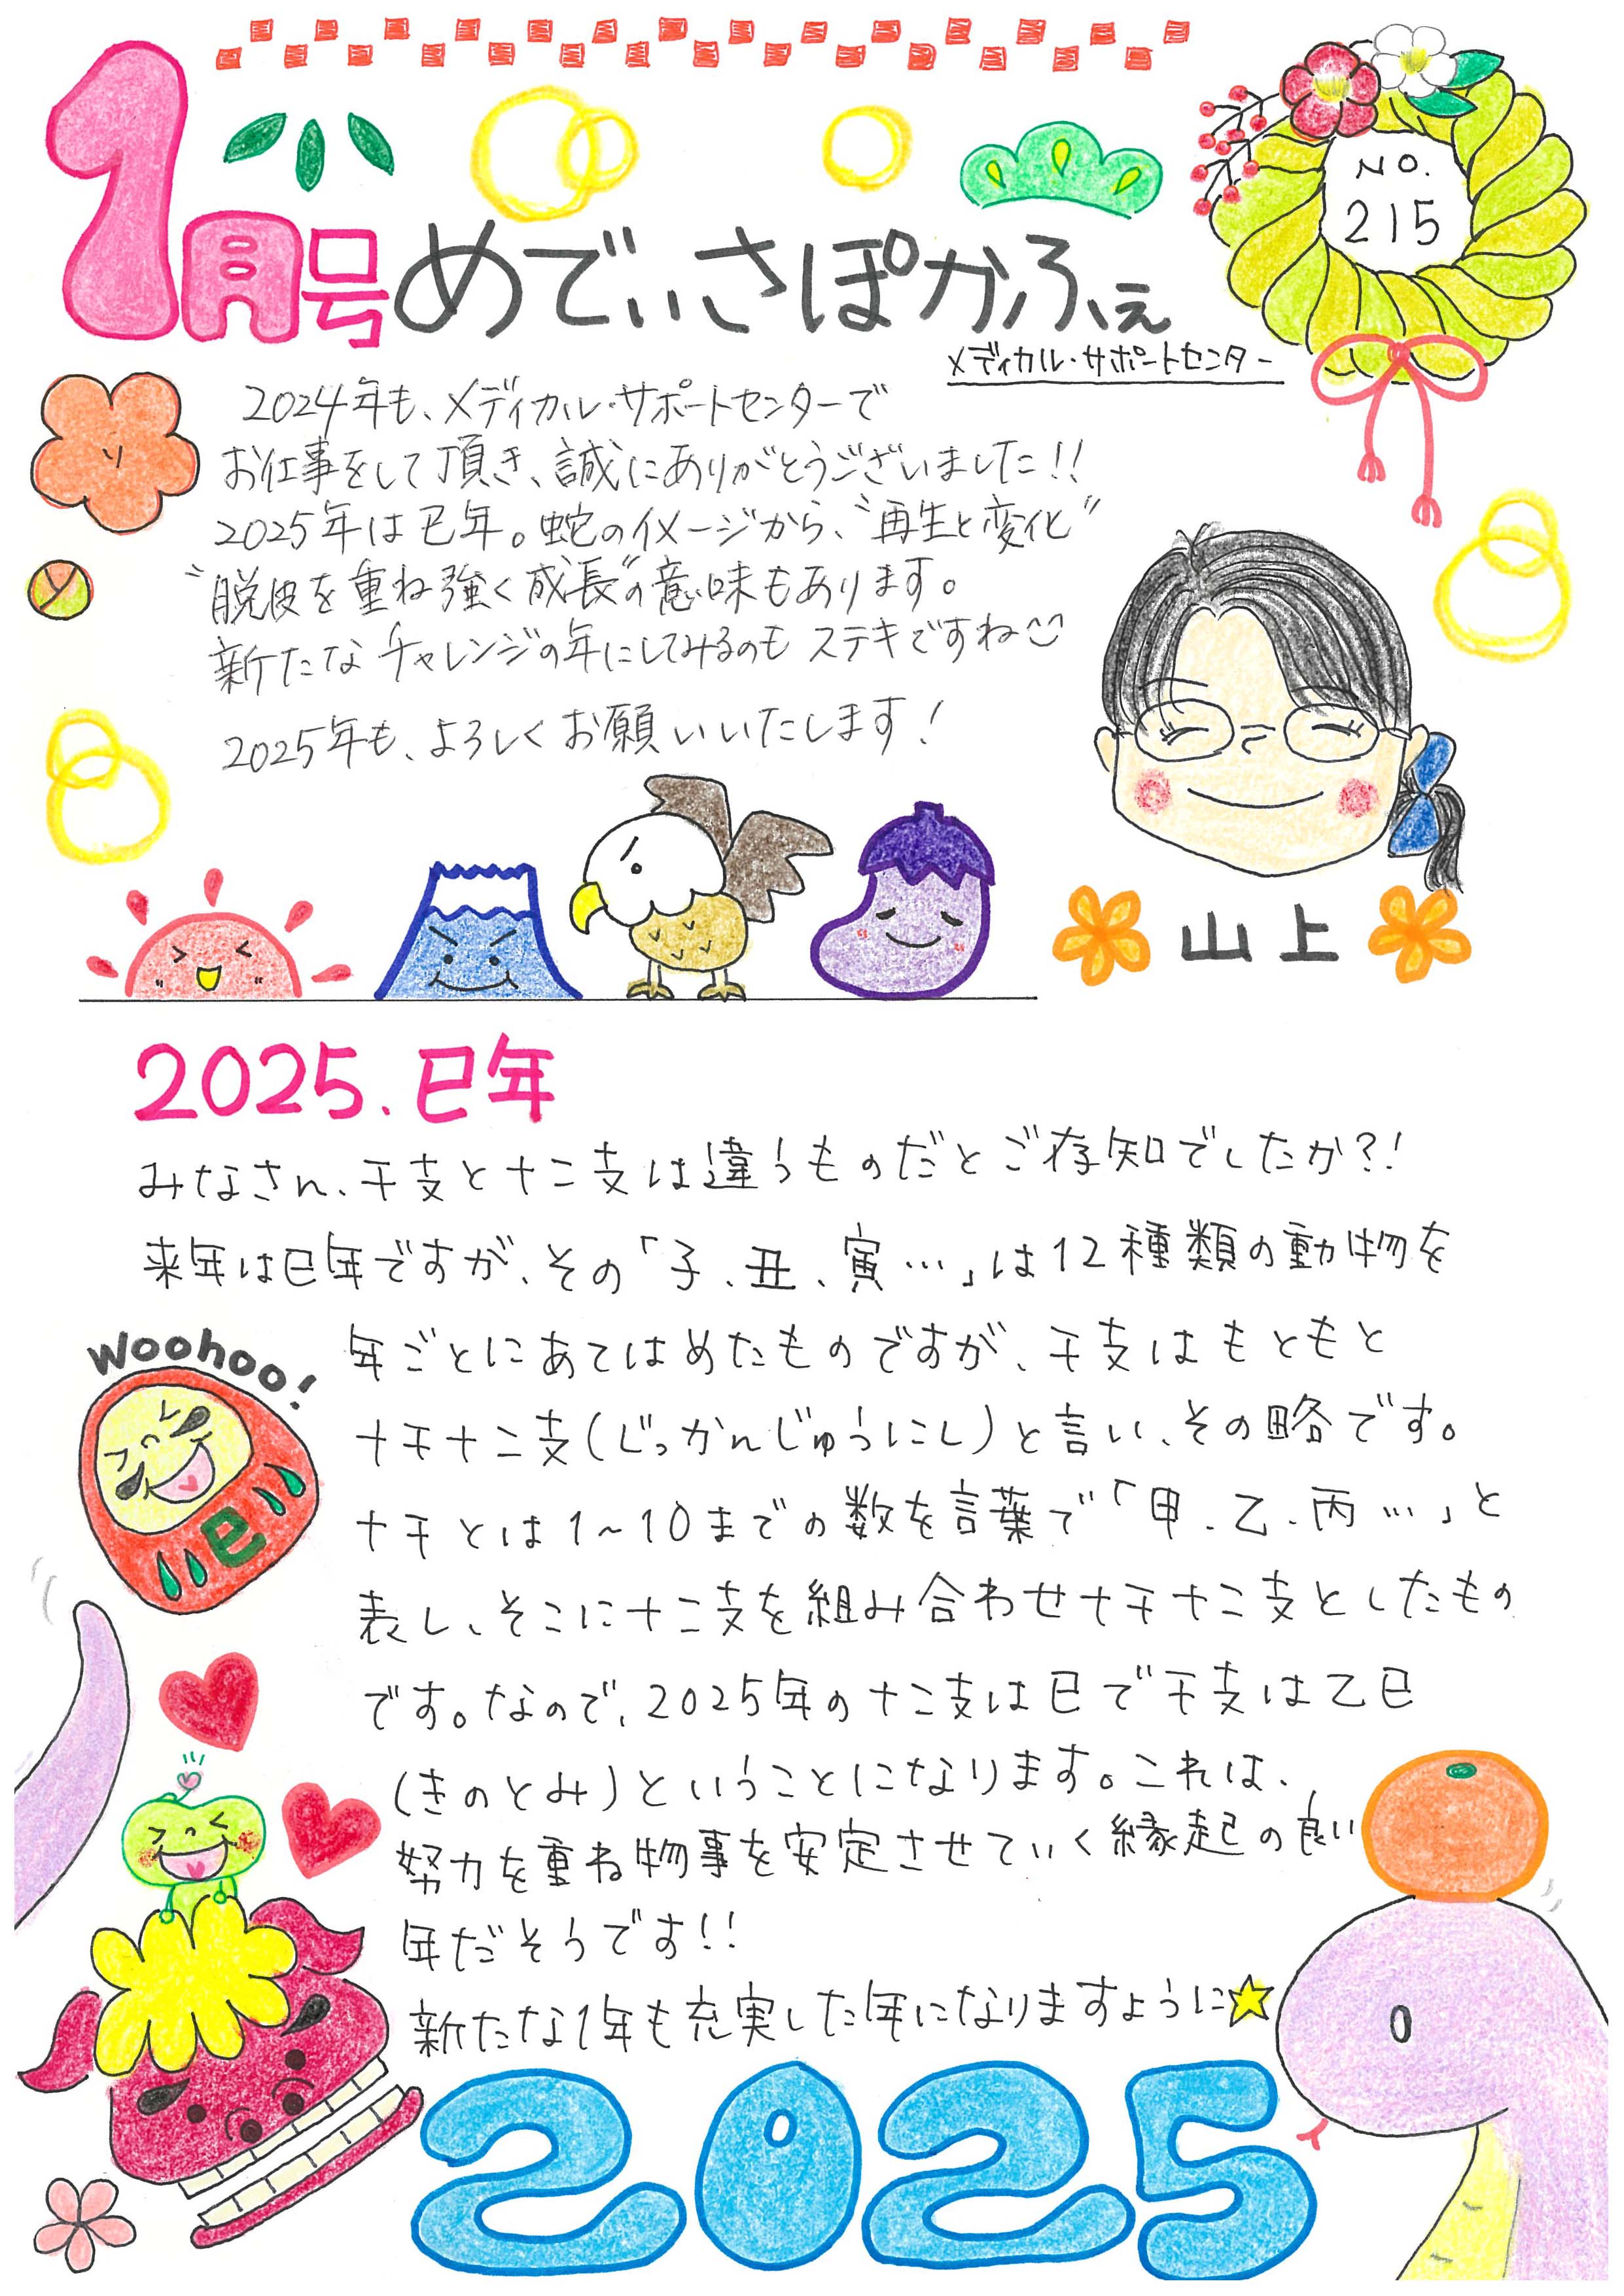 1月号 めでぃさぽかふぇ
NO.
215
メディカル・サポートセンター
2024年も、メディカル・サポートセンターで
お仕事をして頂き、誠にありがとうございました!!
2025年は巳年。蛇のイメージから、“再生と変化”
“脱皮を重ね強く成長”の意味もあります。
新たなチャレンジの年にしてみるのもステキですね
2025年も、よろしくお願いいたします!
山上
2025.巳年
みなさん、干支と十二支は違うものだとご存知でしたか?!
来年は巳年ですが、その「子、丑、寅…」は12種類の動物を
年ごとにあてはめたものですが、干支はもともと
十干十二支(じっかんじゅうにし)と言い、その略です。
十干とは1~10までの数を言葉で「甲、乙、丙…」と
表し、そこに十二支を組み合わせ十干十二支としたもの
です。なので、2025年の十二支は巳で干支は乙巳
(きのとみ)ということになります。これは、
努力を重ね物事を安定させていく縁起の良い
年だそうです!!
新たな1年も充実した年になりますように☆
Woohoo!
巳
2025